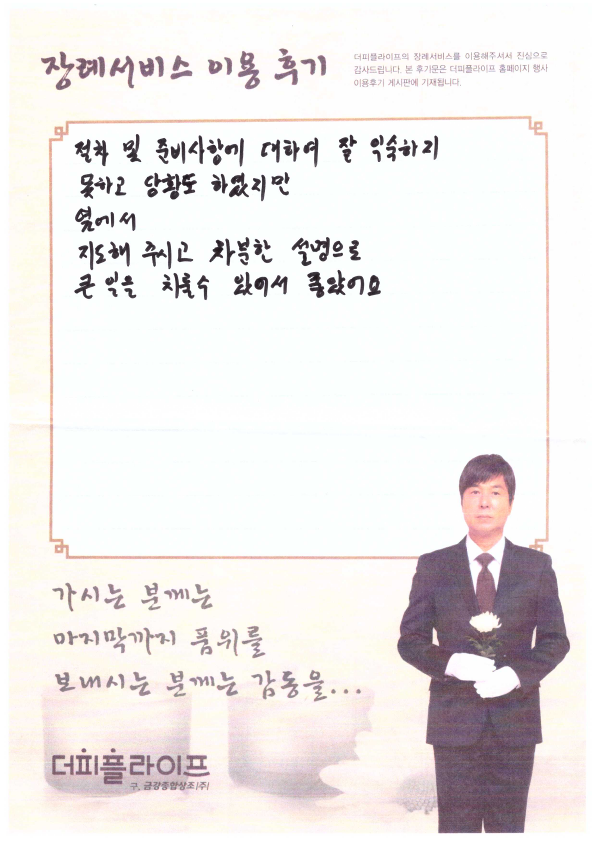 장례서비스 이용 후기
더피플라이프의 장례서비스를 이용해주셔서 진심으로
감사드립니다. 본 후기문은 더피플라이프 홈페이지 행사
이용후기 게시판에 기재됩니다.
절차 및 준비사항에 대하여 잘 익숙하지
못하고 당황도 하였지만
옆에서
지도해 주시고 차분한 설명으로
큰일을 치룰수 있어서 좋았어요
가시는 분께는
마지막까지 품위를
보내시는 분께는 감동을...
더피플라이프
구. 금강종합상조(주)